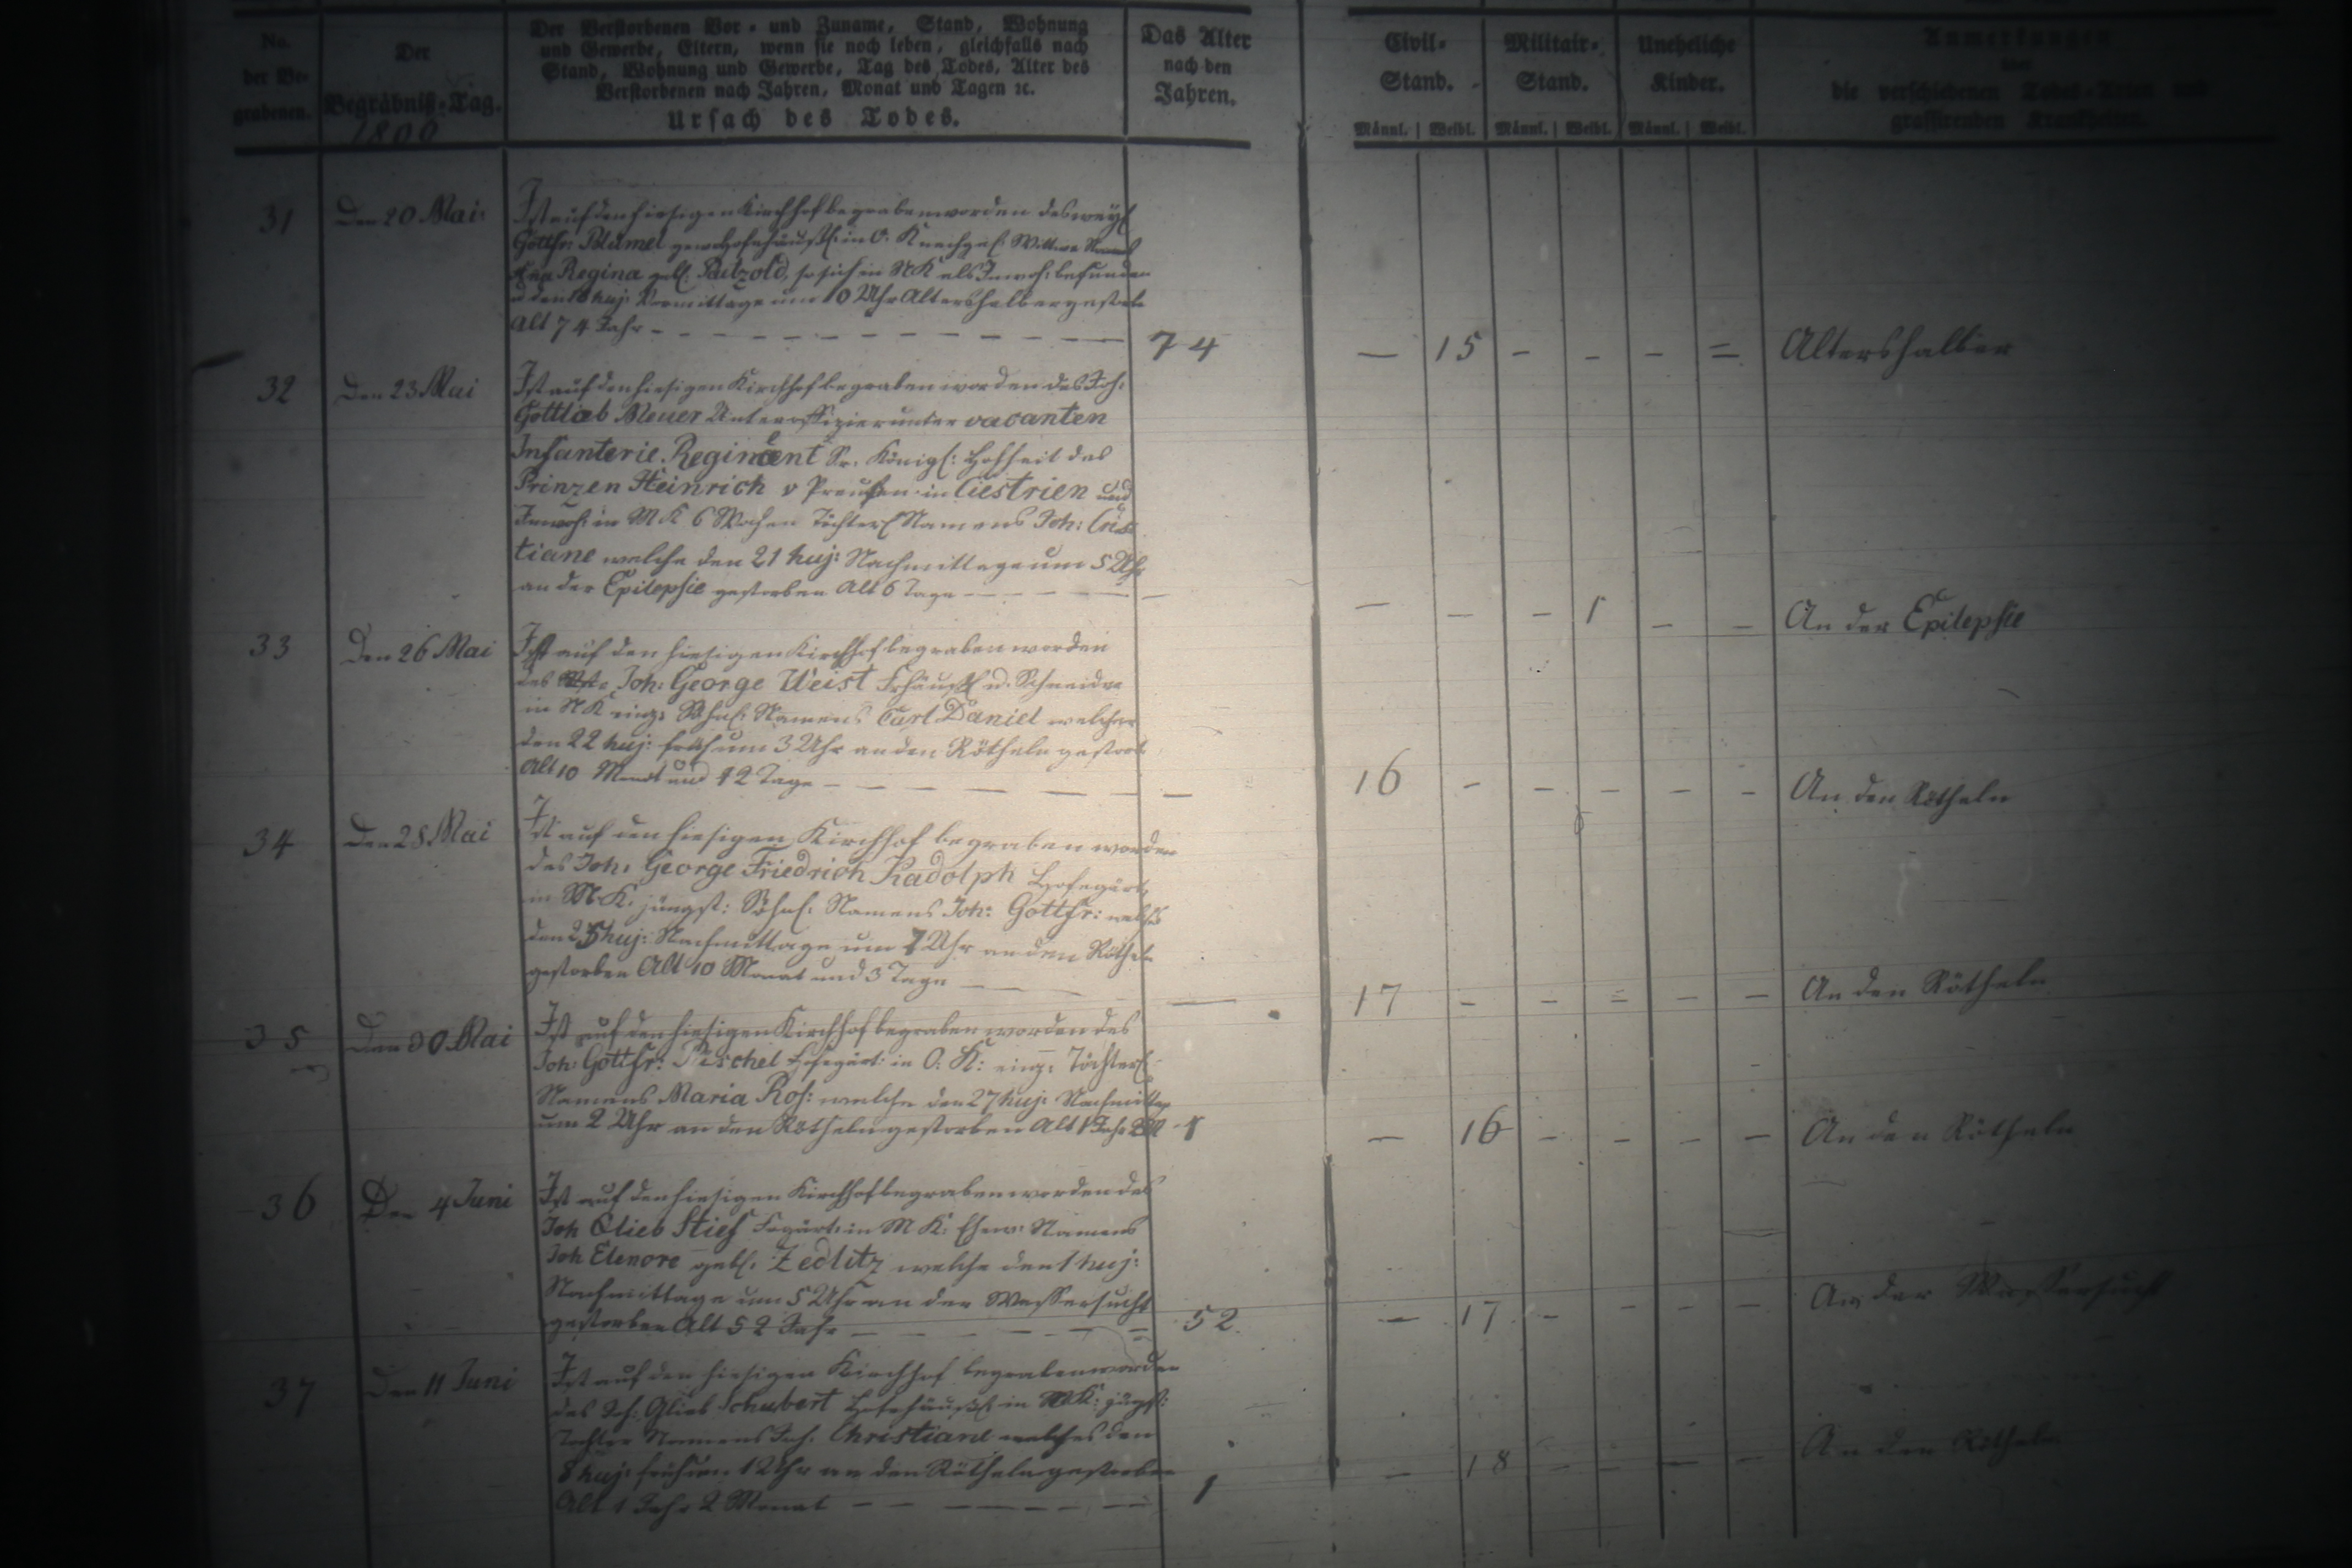 No. der Begrabenen.
Der Begräbniß-Tag.
1806
Der Verstorbenen Vor- und Zuname, Stand, Wohnung
und Gewerbe, Eltern, wenn sie noch leben, gleichfalls nach
Stand, Wohnung und Gewerbe, Tag des Todes, Alter des
Verstorbenen nach Jahren, Monat und Tagen ꝛc.
Ursach des Todes.
Das Alter
nach den
Jahren.
Civil-
Stand.
Militair-
Stand.
Uneheliche
Kinder.
Anmerkungen
über
die verschiedenen Todes-Arten und
grassirenden Krankheiten.
Männl. Weibl. Männl. Weibl. Männl. Weibl.
31 Den 20 Mai
Ist auf den hiesigen Kirchhof begraben worden des weyl
Gottfr: Blümel gew. Hofehäusl: in O. K Wittwe
Regina geb: Paetzold, so sich in NK als Inwoh: befunden
huj: Vormittage um 10 Uhr Altershalber gestorb
Alt 74 Jahr - 74 — 15 - - - = Altershalber
32 Den 23 Mai
Ist auf den hiesigen Kirchhof begraben worden des Joh:
Gottlieb Meuer Unteroffizier unter vacanten
Infanterie Regiment Sr. Königl: Hohheit des
Prinzen Heinrich v Preußen in Cüstrien und
Inwoh: in MK 6 Töchterl Namens Joh: Cris
tiane welche den 21 huj: Nachmittage um 5 Uhr
an der Epilepsie gestorben Alt 6 Tage - — — — - 1 - - An der Epilepsie
33 Den 26 Mai
Ist auf den hiesigen Kirchhof begraben worden
des Joh: George Weist Frhäusl u. Schneider
in NK einz: Söhnl: Namens Carl Daniel welcher
den 22 huj: früh um 3 Uhr an den Rötheln gestorb
Alt 10 Monat und 12 Tage - — 16 - - - - - An den Rötheln
34 Den 28 Mai
Ist auf den hiesigen Kirchhof begraben worden
des Joh: George Friedrich Kadolph Hofegärt:
in MK: jüngst: Söhnl: Namens Joh: Gottfr: welches
den 25 huj: Nachmittage um Uhr an den Rötheln
gestorben Alt 10 Monat und 3 Tage — — 17 - - = - - An den Rötheln
35 Den 30 Mai
Ist auf den hiesigen Kirchhof begraben worden des
Joh: Gottfr: Pischel Hofegärt: in O: K: einz: Töchterl:
Namens Maria Ros: welche den 27 huj: Nachmittag
um 2 Uhr an den Rötheln gestorben Alt 1 Jahr - 1 — 16 - - - - An den Rötheln
36 Den 4 Juni
Ist auf den hiesigen Kirchhof begraben worden des
Joh Glieb Stief Frgärt: in MK: Ehew: Namens
Joh Elenore geb: Zedlitz welche den 1 huj:
Nachmittage um 5 Uhr an der Wassersucht
gestorben Alt 52 Jahr — 52. — 17 - - - - An der Wassersucht
37 Den 11 Juni
Ist auf den hiesigen Kirchhof begraben worden
des Joh: Glieb Schubert Hofehäusl: in MK: jüngst:
Tochter Namens Joh: Christiane welches den
8 huj: früh um 1 Uhr an den Rötheln gestorben
Alt 1 Jahr 2 Monat — 1 — 18 - - - - An den Rötheln